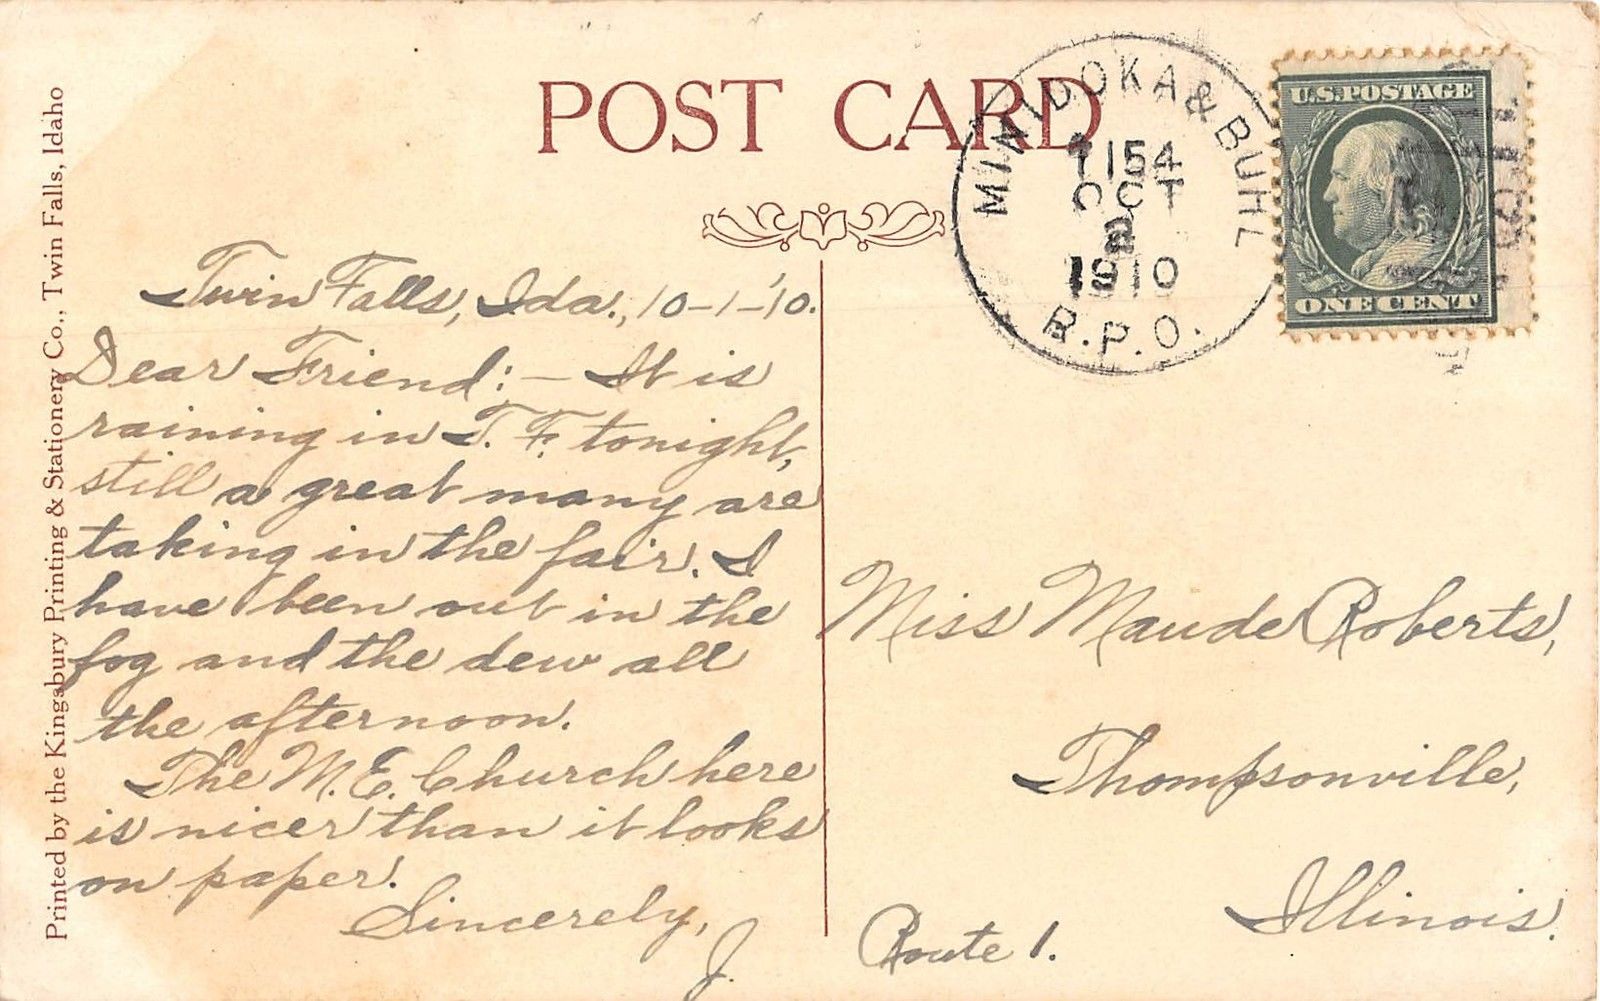 POST CARD
MINIDOKA & BUHL
T 154
OCT
2
1910
R.P.O.
U.S.POSTAGE
ONE CENT
Printed by the Kingsbury Printing & Stationery Co., Twin Falls, Idaho
Twin Falls, Ida., 10-1-'10.
Dear Friend:— It is
raining in T. F. tonight,
still a great many are
taking in the fair. I
have been out in the
fog and the dew all
the afternoon.
The M. E. Church here
is nicer than it looks
on paper.
Sincerely,
J.
Miss Maude Roberts,
Thompsonville,
Illinois.
Route 1.